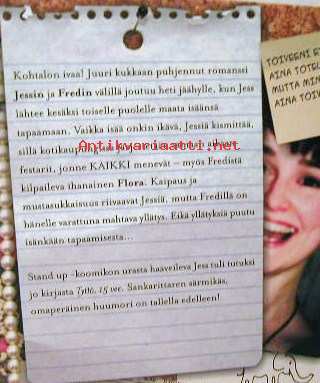 Kohtalon ivaa! Juuri kukkaan puhjennut romanssi
Jessin ja Fredin välillä joutuu heti jäähylle, kun Jess
lähtee kesäksi toiselle puolelle maata isäänsä
tapaamaan. Vaikka isää onkin ikävä, Jessiä kismittää,
sillä kotikaupungissa
Antikvariaatti.net
festarit, jonne KAIKKI menevät – myös Fredistä
kilpaileva ihanainen Flora. Kaipaus ja
mustasukkaisuus riivaavat Jessiä, mutta Fredillä on
hänelle varattuna mahtava yllätys. Eikä yllätyksiä puutu
isänkään tapaamisesta...
Stand up -koomikon urasta haaveileva Jess tuli tutuksi
jo kirjasta Tyttö, 15 vee. Sankarittaren särmikäs,
omaperäinen huumori on tallella edelleen!
TOIVEENI E
AINA TOTEU
MUTTA MIN
AINA TOIV